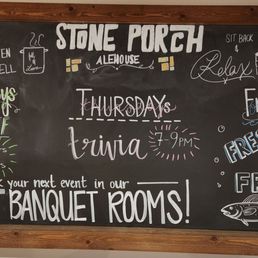 STONE PORCH
ALEHOUSE
SIT BACK &
Relax
THURSDAYS
trivia
7-9PM
FRES
FRE
your next event in our
BANQUET ROOMS!